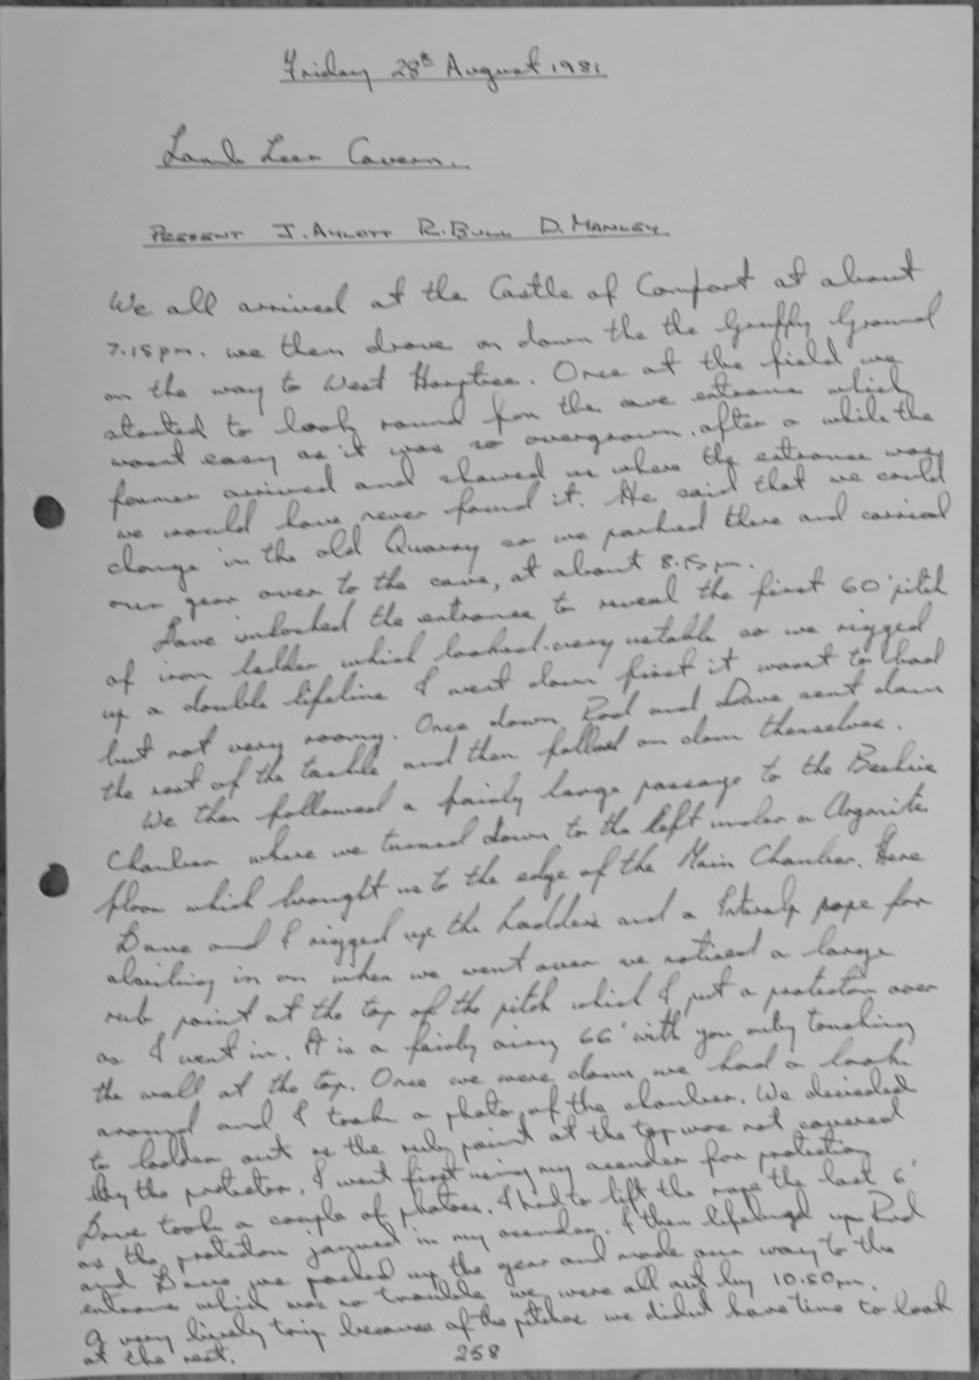 Friday 28th August 1981
Lamb Leer Cavern.
PRESENT J. AYLOTT R. BULL D. MANLEY
We all arrived at the Castle of Comfort at about
7.15pm. we then drove on down the the Gruffy Ground
on the way to West Harptree. Once at the field we
started to look round for the cave entrance which
wasnt easy as it was so overgrown, after a while the
farmer arrived and showed us where the entrance was
we would have never found it. He said that we could
change in the old Quarry so we parked there and carried
our gear over to the cave, at about 8.15pm.
Dave unlocked the entrance to reveal the first 60' pitch
of iron ladder which looked very ustable so we rigged
up a double lifeline I went down first it wasnt to bad
but not very roomy. Once down Rod and Dave sent down
the rest of the tackle and then follwd on down themselves.
We then followed a fairly large passage to the Beehive
Chamber where we turned down to the left under a Argonite
floor which brought us to the edge of the Main Chamber. Here
Dave and I rigged up the ladders and a rope for
abseiling in on when we went over we noticed a large
rub point at the top of the pitch which I put a protector over
as I went in. It is a fairly airy 66' with you only touching
the wall at the top. Once we were down we had a look
around and I took a photo of the chamber. We decided
to ladder out as the rub point at the top was not covered
by the protector. I went first using my asender for protection
Dave took a couple of photoes. I had to lift the rope the last 6'
as the protector jammed in my asender. I then lifelined up Rod
and Dave we packed up the gear and made our way to the
entrance which was no trouble we were all out by 10.50pm.
A very lively trip because of the pitches we didnt have time to look
at the rest.
258